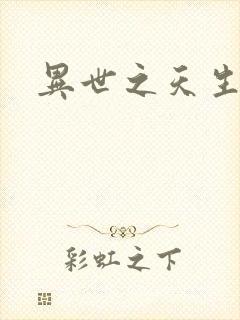 異世之天生
彩虹之下